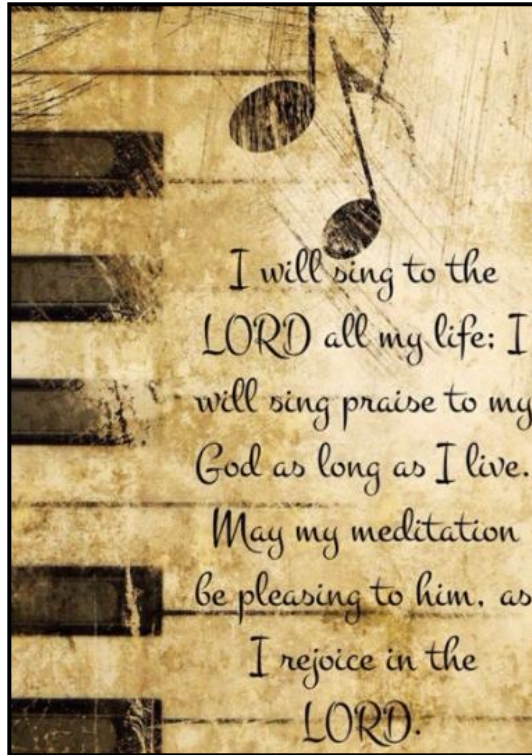 I will sing to the
LORD all my life; I
will sing praise to my
God as long as I live.
May my meditation
be pleasing to him, as
I rejoice in the
LORD.